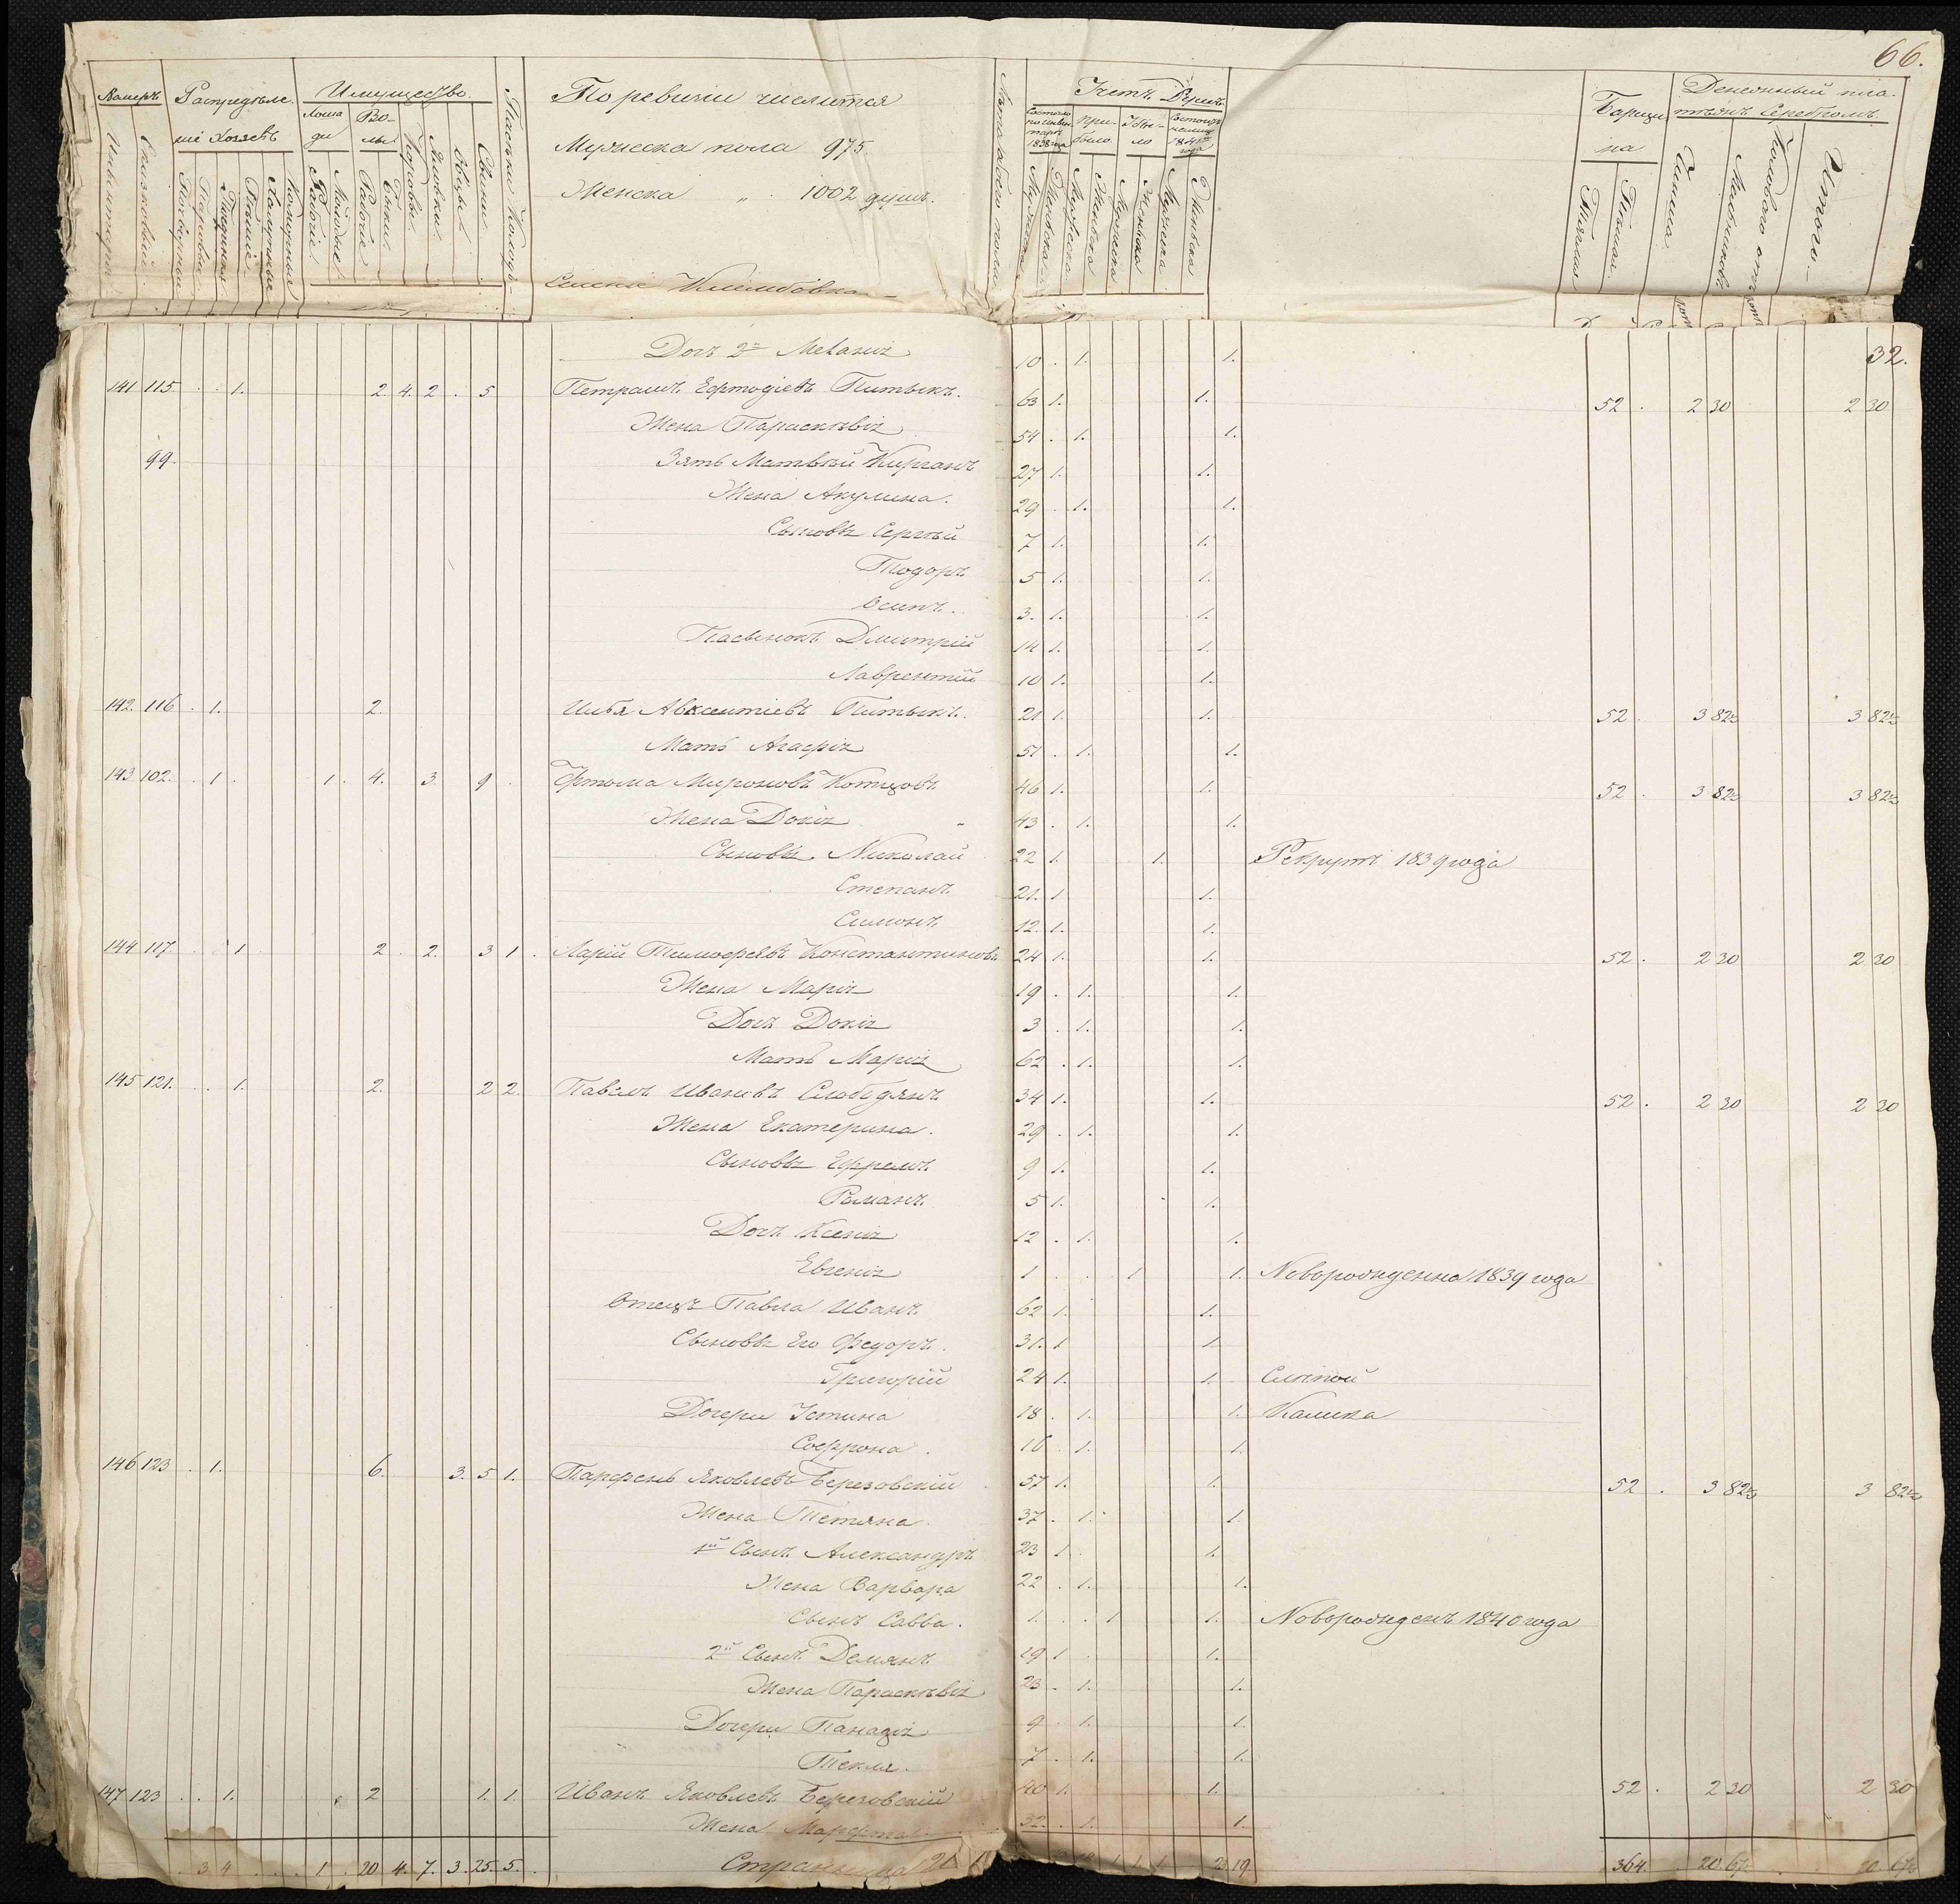 66.
Номеръ Распредѣле- Имущество.
ніе Хозяевъ
Лошади Волы
Инвентаря
Списковый
Рабочіе
Молодые
Рабочіе
Бычки
Коровы
Яловки
Овцы
Свиньи
По ревизіи числится
Мужеска пола 975.
Женска " 1002 душъ.
Лѣта отъ
Учетъ Душъ
Состояло по инвентарю 1838 года
Прибыло
Убыло
Состоитъ на лицо 1841 года
Мужеска
Женска
Мужеска
Женска
Мужеска
Женска
Мужеска
Женска
Барщина
Тяглая
Пѣшая
Денежный платежъ серебромъ
Чинша
Итого
32.
Дочь 2я Меланія 10 . 1. 1.
141 115. . . 1. 2. 4. 2 . 5 Петрашъ Ефтодіевъ Питыкъ. 63 1. 1. 52 . 2 30 2 30
Жена Параскѣвія 54 . 1. 1.
99. Зять Матвѣй Кирганъ 27 1. 1.
Жена Акулина. 29 . 1. 1.
Сыновья Сергѣй 7 1. 1.
Тодоръ 5 1. 1.
Осипъ. 3. 1. 1.
Пасынокъ Дмитрій 14 1. 1.
Лаврентій 10 1. 1.
142. 116 . 1. 2. Илья Авксентіевъ Питыкъ. 21 1. 1. 52 . 3 82½ 3 82½
Мать Агафія 51 . 1. 1.
143 102. . 1. 1. 4. 3. 9 . Артома Мироновъ Котцовъ 46 1. 1. 52 . 3 82½ 3 82½
Жена Докія 43 . 1. 1.
Сыновья Николай 22 1. 1. Рекрутъ 1839 года
Степанъ 21. 1 1.
Симонъ 12. 1. 1.
144 117. . . 1. 2 . 2. 3 1 . Ларій Тимофѣевъ Константиновъ 24 1. 1. 52 . 2 30 2 30
Жена Марія 19 . 1. 1.
Дочь Докія 3 . 1. 1.
Мать Марія 62 . 1. 1.
145 121. . . 1. 2. 2 2. Павелъ Ивановъ Слободянъ 34 1. 1. 52 . 2 30 2 30
Жена Екатерина. 29 . 1. 1.
Сыновья Ефремъ 9 1. 1.
Романъ 5 1. 1.
Дочь Ксенія 12 . 1. 1.
Евгенія 1 . . 1 1. Новорожденна 1839 года
Отецъ Павла Иванъ 62 1. 1.
Сыновья Его Федоръ. 31. 1 1
Григорій 24 1. 1. Слѣпой
Дочери Устина 18 . 1. 1. Калика
Софрона . 16 . 1. 1.
146 123 . 1. 6. 3. 5 1. Парфенъ Яковлевъ Березовскій 57 1. 1. 52 . 3 82½ 3 82½
Жена Тетяна 37 . 1. 1.
1й Сынъ Александръ 23 1. 1.
Жена Варвара 22 . 1. 1.
Сынъ Савва. 1. . . 1 1. Новорожденъ 1840 года
2й Сынъ Демянъ 19 1 1.
Жена Параскѣвія 23 . 1. 1.
Дочери Панадія 9 . 1. 1.
Текля. 7 . 1. 1.
147 123 . . 1. 2 1. 1. Иванъ Яковлевъ Березовскій 40 1. 1. 52 . 2 30 2 30
Жена Марфта. 32. . 1. 1.
3 4 . . . 1 . 20 4. 7. 3. 25. 5. Страница 1 1 1 19 364. 20 67½ 20 67½